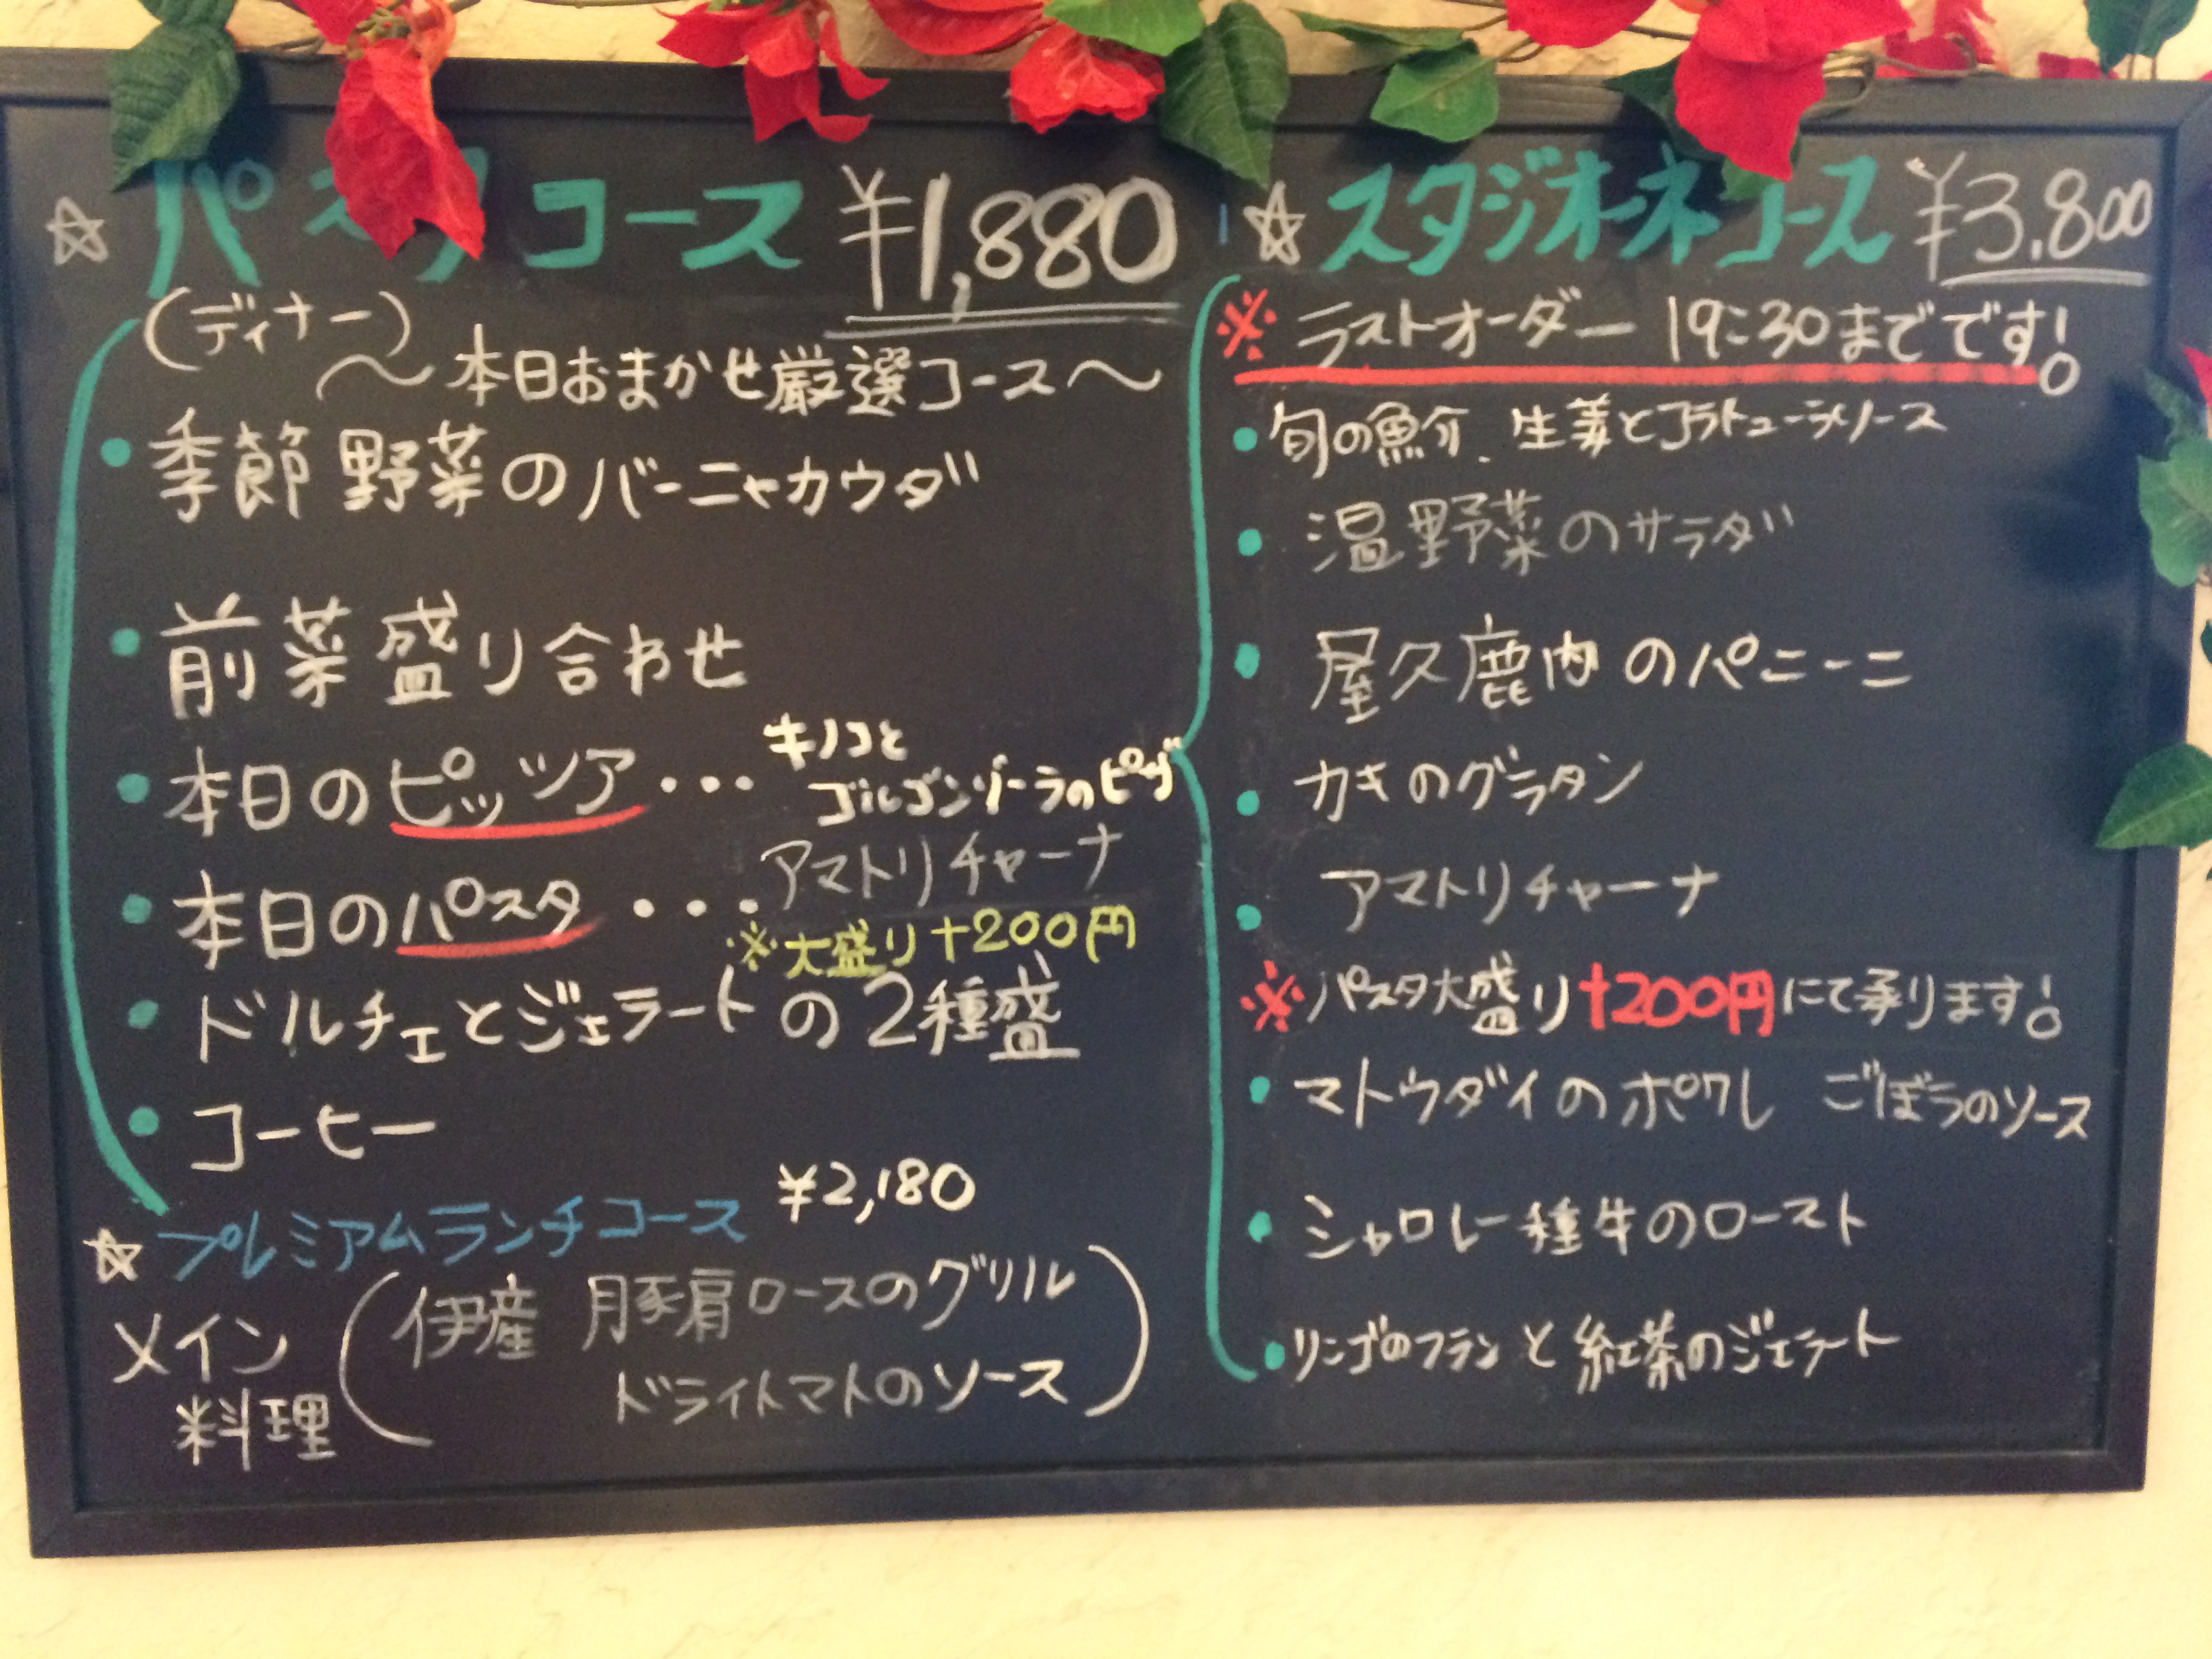 ☆ パスタコース ¥1,880
(ディナー)
〜本日おまかせ厳選コース〜
・季節野菜のバーニャカウダ
・前菜盛り合わせ
・本日のピッツァ・・・キノコと
ゴルゴンゾーラのピザ
・本日のパスタ・・・アマトリチャーナ
※大盛り+200円
・ドルチェとジェラートの2種盛
・コーヒー
☆プレミアムランチコース ¥2,180
メイン
料理
(伊産 豚肩ロースのグリル
ドライトマトのソース)
☆スタジオーネコース ¥3,800
※ラストオーダー 19:30までです!
・旬の魚介、生姜とコラトゥーラソース
・温野菜のサラダ
・屋久鹿肉のパニーニ
・カキのグラタン
・アマトリチャーナ
※パスタ大盛り+200円にて承ります!
・マトウダイのポワレ ごぼうのソース
・シャロレー種牛のロースト
・リンゴのフランと紅茶のジェラート